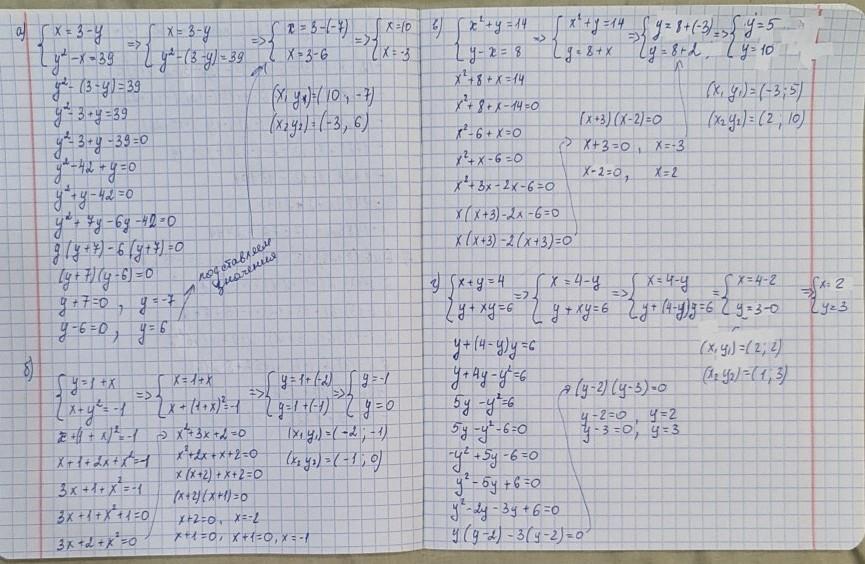 а) { x = 3-y ; y²-x = 39 => { x = 3-y ; y²-(3-y) = 39 => { x = 3-(-7) ; x = 3-6 => { x = 10 ; x = -3
y²-(3-y) = 39
y²-3+y = 39
y²-3+y-39 = 0
y²-42+y = 0
y²+y-42 = 0
y²+7y-6y-42 = 0
y(y+7)-6(y+7) = 0
(y+7)(y-6) = 0
y+7=0, y=-7
y-6=0, y=6
подставляем
значения
(x, y₁) = (10; -7)
(x₂ y₂) = (-3, 6)
б) { y = 1+x ; x+y² = -1 => { x = 1+x ; x+(1+x)² = -1 => { y = 1+(-2) ; y = 1+(-1) => { y = -1 ; y = 0
x+(1+x)² = -1
x+1+2x+x² = -1
3x+1+x² = -1
3x+1+x²+1 = 0
3x+2+x² = 0
x²+3x+2 = 0
x²+2x+x+2 = 0
x(x+2)+x+2 = 0
(x+2)(x+1) = 0
x+2=0, x=-2
x+1=0, x+1=0, x=-1
(x, y₁) = (-2; -1)
(x₂ y₂) = (-1; 0)
в) { x²+y = 14 ; y-x = 8 => { x²+y = 14 ; y = 8+x => { y = 8+(-3) ; y = 8+2 => { y = 5 ; y = 10
x²+8+x = 14
x²+8+x-14 = 0
x²-6+x = 0
x²+x-6 = 0
x²+3x-2x-6 = 0
x(x+3)-2x-6 = 0
x(x+3)-2(x+3) = 0
(x+3)(x-2) = 0
x+3=0, x=-3
x-2=0, x=2
(x, y₁) = (-3; 5)
(x₂ y₂) = (2; 10)
г) { x+y = 4 ; y+xy = 6 => { x = 4-y ; y+xy = 6 => { x = 4-y ; y+(4-y)y = 6 = { x = 4-2 ; y = 3-0 => { x = 2 ; y = 3
y+(4-y)y = 6
y+4y-y² = 6
5y-y² = 6
5y-y²-6 = 0
-y²+5y-6 = 0
y²-5y+6 = 0
y²-2y-3y+6 = 0
y(y-2)-3(y-2) = 0
(y-2)(y-3) = 0
y-2=0, y=2
y-3=0, y=3
(x, y₁) = (2; 2)
(x₂ y₂) = (1, 3)